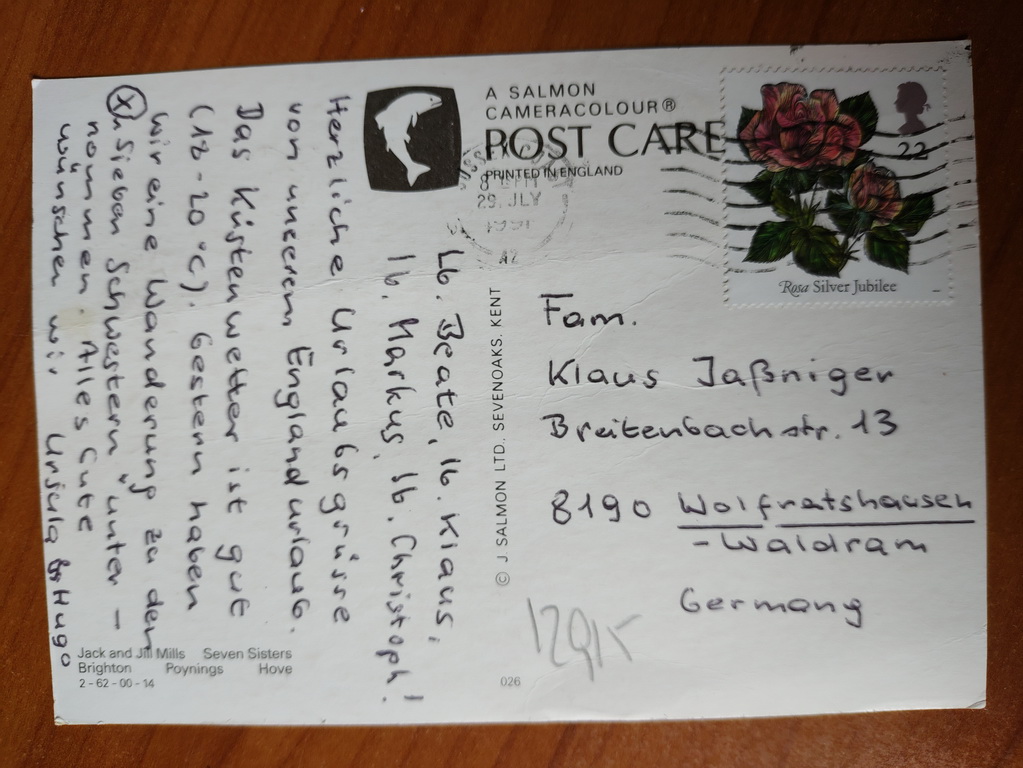 A SALMON
CAMERACOLOUR®
POST CARD
PRINTED IN ENGLAND
29 JLY
22
Rosa Silver Jubilee
Lb. Beate, lb. Klaus,
lb. Markus, lb. Christoph!
Herzliche Urlaubsgrüsse
von unserem Englandurlaub.
Das Küstenwetter ist gut
(18-20°C). Gestern haben
wir eine Wanderung zu den
"Sieben Schwestern" unter-
nommen. Alles Gute
wünschen wir Ursula & Hugo
© J. SALMON LTD. SEVENOAKS. KENT
Fam.
Klaus Jaßniger
Breitenbachstr. 13
8190 Wolfratshausen
-Waldram
Germany
Jack and Jill Mills Seven Sisters
Brighton Poynings Hove
2-62-00-14
026